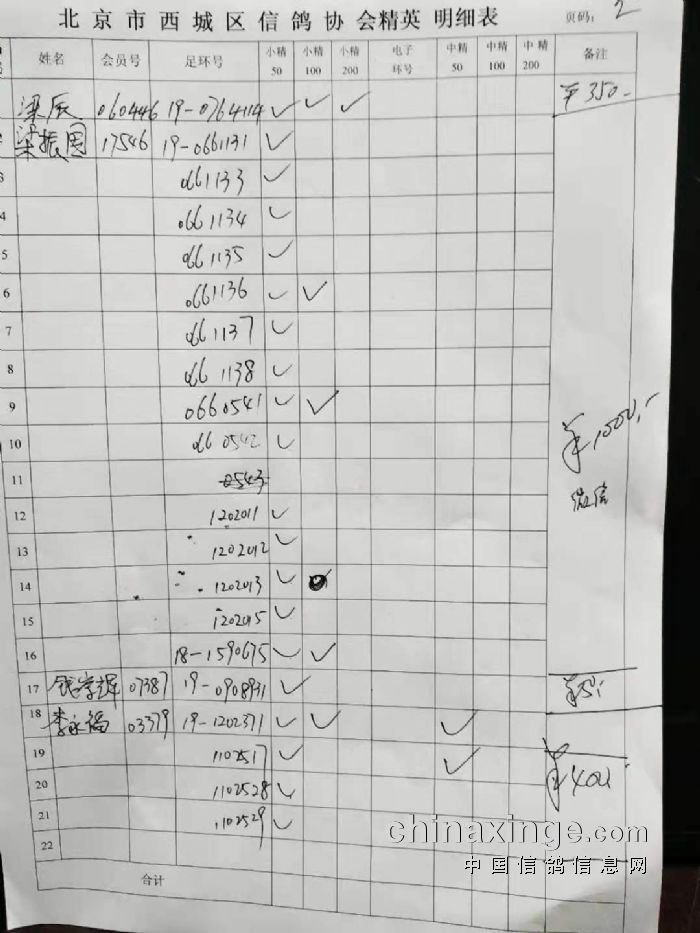 北京市西城区信鸽协会精英 明细表 页码: 2
姓名 会员号 足环号 小精 50 小精 100 小精 200 电子环号 中精 50 中精 100 中精 200 备注
梁辰 060446 19-0764114 ✓ ✓ ✓ ¥350-
梁振国 17546 19-0661131 ✓
3 0661133 ✓
4 0661134 ✓
5 0661135 ✓
6 0661136 ✓ ✓
7 0661137 ✓
8 0661138 ✓
9 0660541 ✓ ✓
10 0660542 ✓ ¥1000.-
11 0543
12 1202011 ✓ 微信
13 1202012 ✓
14 1202013 ✓
15 1202015 ✓
16 18-1590675 ✓ ✓
17 07387 19-0908931 ✓
18 李永福 03379 19-1202371 ✓ ✓ ✓
19 1102517 ✓ ✓
20 1102528 ✓ ¥400
21 1102529 ✓
22
合计
chinaxinge.com
中国信鸽信息网